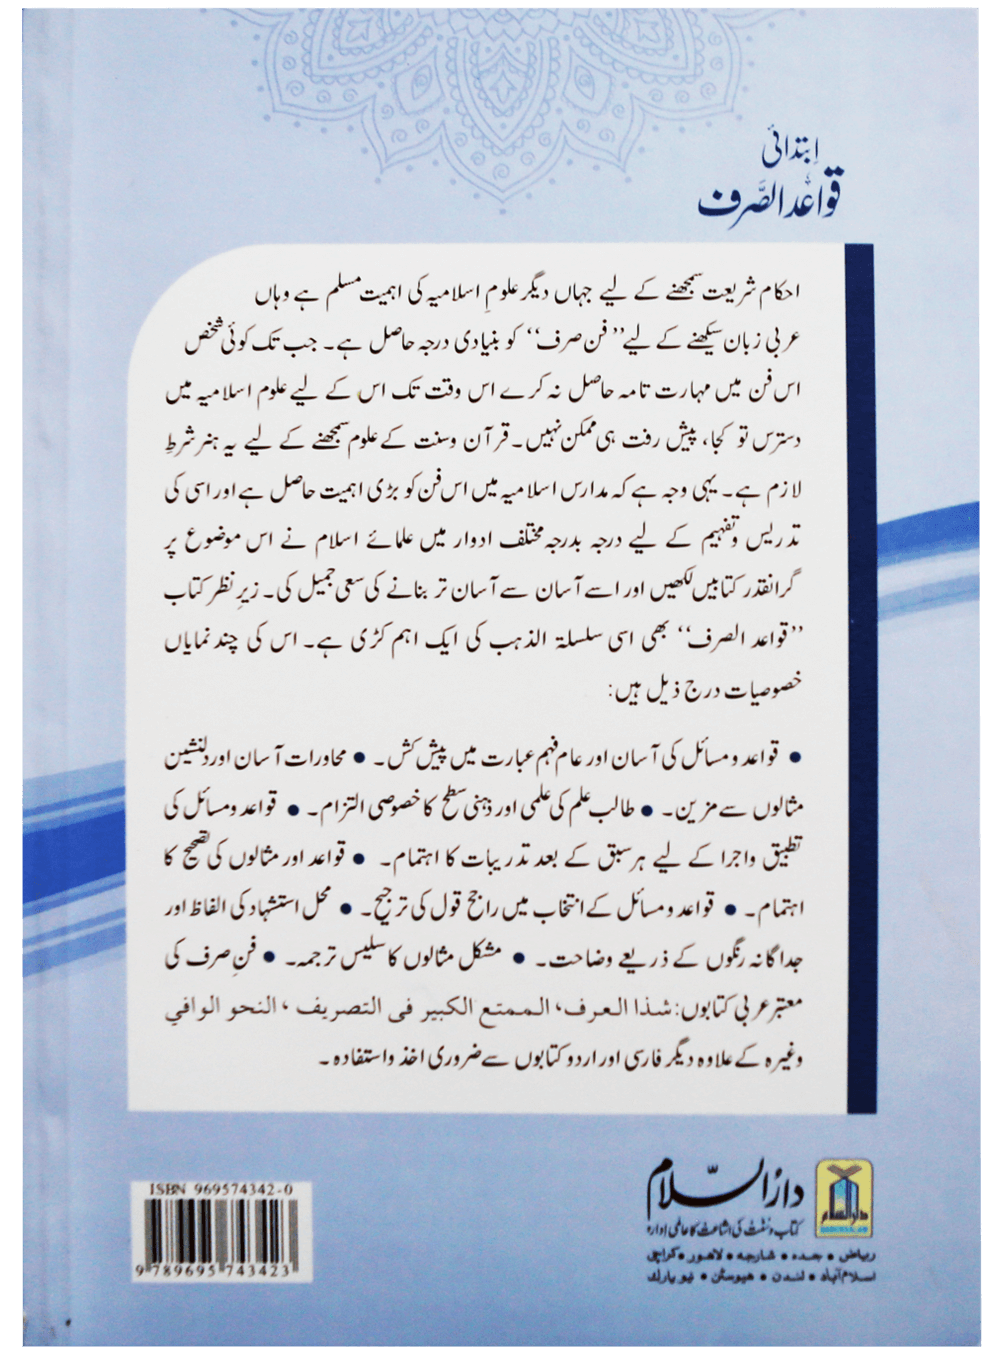 ابتدائی
قواعد الصرف
احکام شریعت سمجھنے کے لیے جہاں دیگر علومِ اسلامیہ کی اہمیت مسلم ہے وہاں
عربی زبان سیکھنے کے لیے ’’فن صرف‘‘ کو بنیادی درجہ حاصل ہے۔ جب تک کوئی شخص
اس فن میں مہارت تامہ حاصل نہ کرے اس وقت تک اس کے لیے علوم اسلامیہ میں
دسترس تو کجا، پیش رفت ہی ممکن نہیں۔ قرآن وسنت کے علوم سمجھنے کے لیے یہ ہنر شرطِ
لازم ہے۔ یہی وجہ ہے کہ مدارس اسلامیہ میں اس فن کو بڑی اہمیت حاصل ہے اور اسی کی
تدریس وتفہیم کے لیے درجہ بدرجہ مختلف ادوار میں علمائے اسلام نے اس موضوع پر
گرانقدر کتابیں لکھیں اور اسے آسان سے آسان تر بنانے کی سعی جمیل کی۔ زیرِ نظر کتاب
’’قواعد الصرف‘‘ بھی اسی سلسلۃ الذہب کی ایک اہم کڑی ہے۔ اس کی چند نمایاں
خصوصیات درج ذیل ہیں:
• قواعد و مسائل کی آسان اور عام فہم عبارت میں پیش کش۔ • محاورات آسان اور دلنشین
مثالوں سے مزین۔ • طالب علم کی علمی اور ذہنی سطح کا خصوصی التزام۔ • قواعد ومسائل کی
تطبیق واجرا کے لیے ہر سبق کے بعد تدریبات کا اہتمام۔ • قواعد اور مثالوں کی تصحیح کا
اہتمام۔ • قواعد ومسائل کے انتخاب میں راجح قول کی ترجیح۔ • محل استشہاد کی الفاظ اور
جداگانہ رنگوں کے ذریعے وضاحت۔ • مشکل مثالوں کا سلیس ترجمہ۔ • فنِ صرف کی
معتبر عربی کتابوں: شذا العرف، الممتع الکبیر فی التصریف، النحو الوافي
وغیرہ کے علاوہ دیگر فارسی اور اردو کتابوں سے ضروری اخذ واستفادہ۔
دارالسلام
کتاب وسنت کی اشاعت کا عالمی ادارہ
ریاض • جدہ • شارجہ • لاہور • کراچی
اسلام آباد • لندن • ہیوسٹن • نیو یارک
دارالسلام
DARUSSALAM
ISBN 969574342-0
9 789695 743423